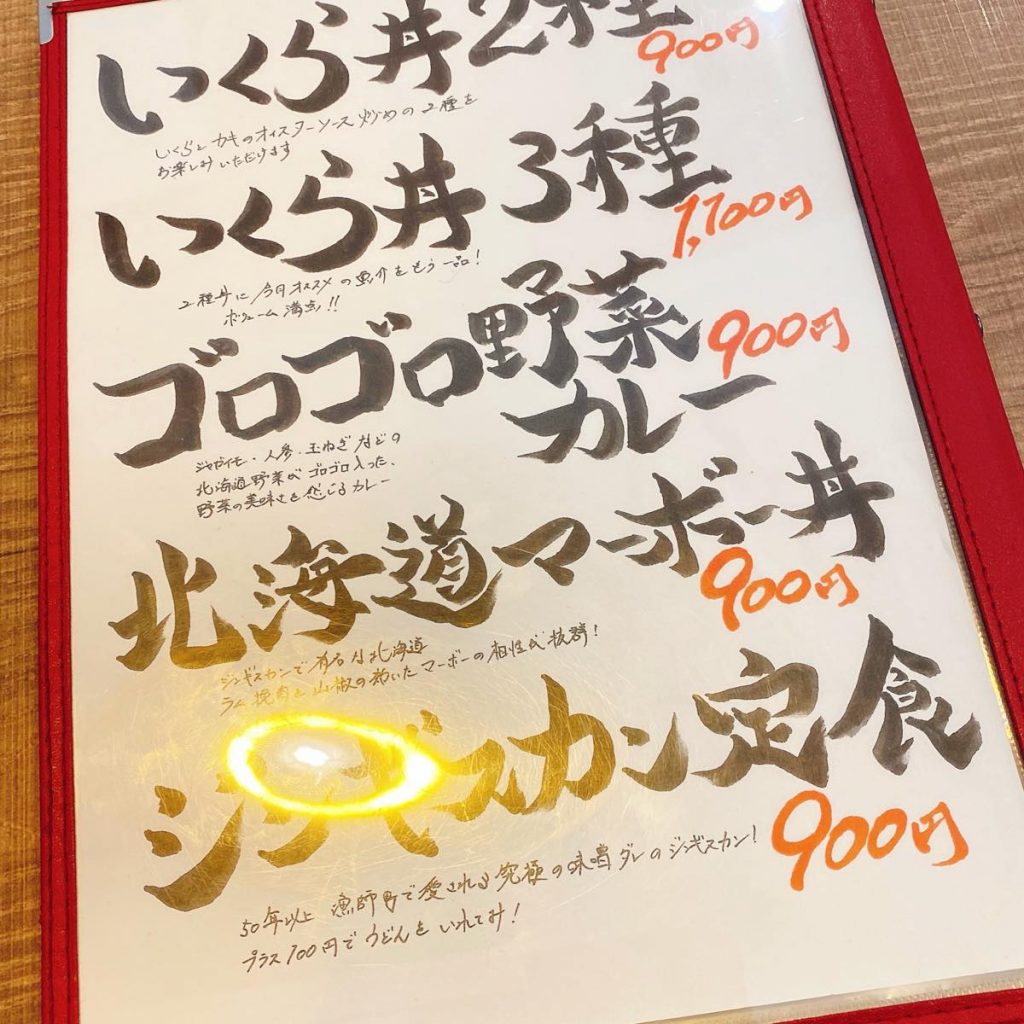 いくら丼2種
900円
いくらとカキのオイスターソース炒めの2種を
お楽しみいただけます
いくら丼3種
1,100円
2種丼に今日オススメの魚介をもう一品!
ボリューム満点!!
ゴロゴロ野菜
カレー
900円
ジャガイモ・人参・玉ねぎなどの
北海道野菜がゴロゴロ入った、
野菜の美味さを感じるカレー
北海道マーボー丼
900円
ジンギスカンで有名な北海道
ラム挽肉と山椒の効いたマーボーの相性が抜群!
ジンギスカン定食
900円
50年以上 漁師町で愛される究極の味噌ダレのジンギスカン!
プラス100円でうどんをいれてみ!